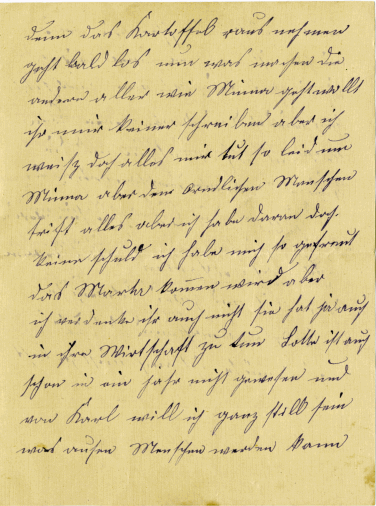 denn das Kartoffel raus nehmen
geht bald los nun was machen die
andern aller wie Minna geht wollt
ihr mir keiner schreiben aber ich
weisz doch alles mir tut so leid um
Minna aber den ordlichen Menschen
trift alles aber ich habe daran doch
keine schuld ich habe mich so gefreut
das Marta kommen wird aber
ich verdenke ihr auch nicht sie hat ja auch
in ihre Wirtschaft zu tun Lotte ist auch
schon in ein jahr nicht gewesen und
von Karl will ich ganz still sein
was ausen Menschen werden kann